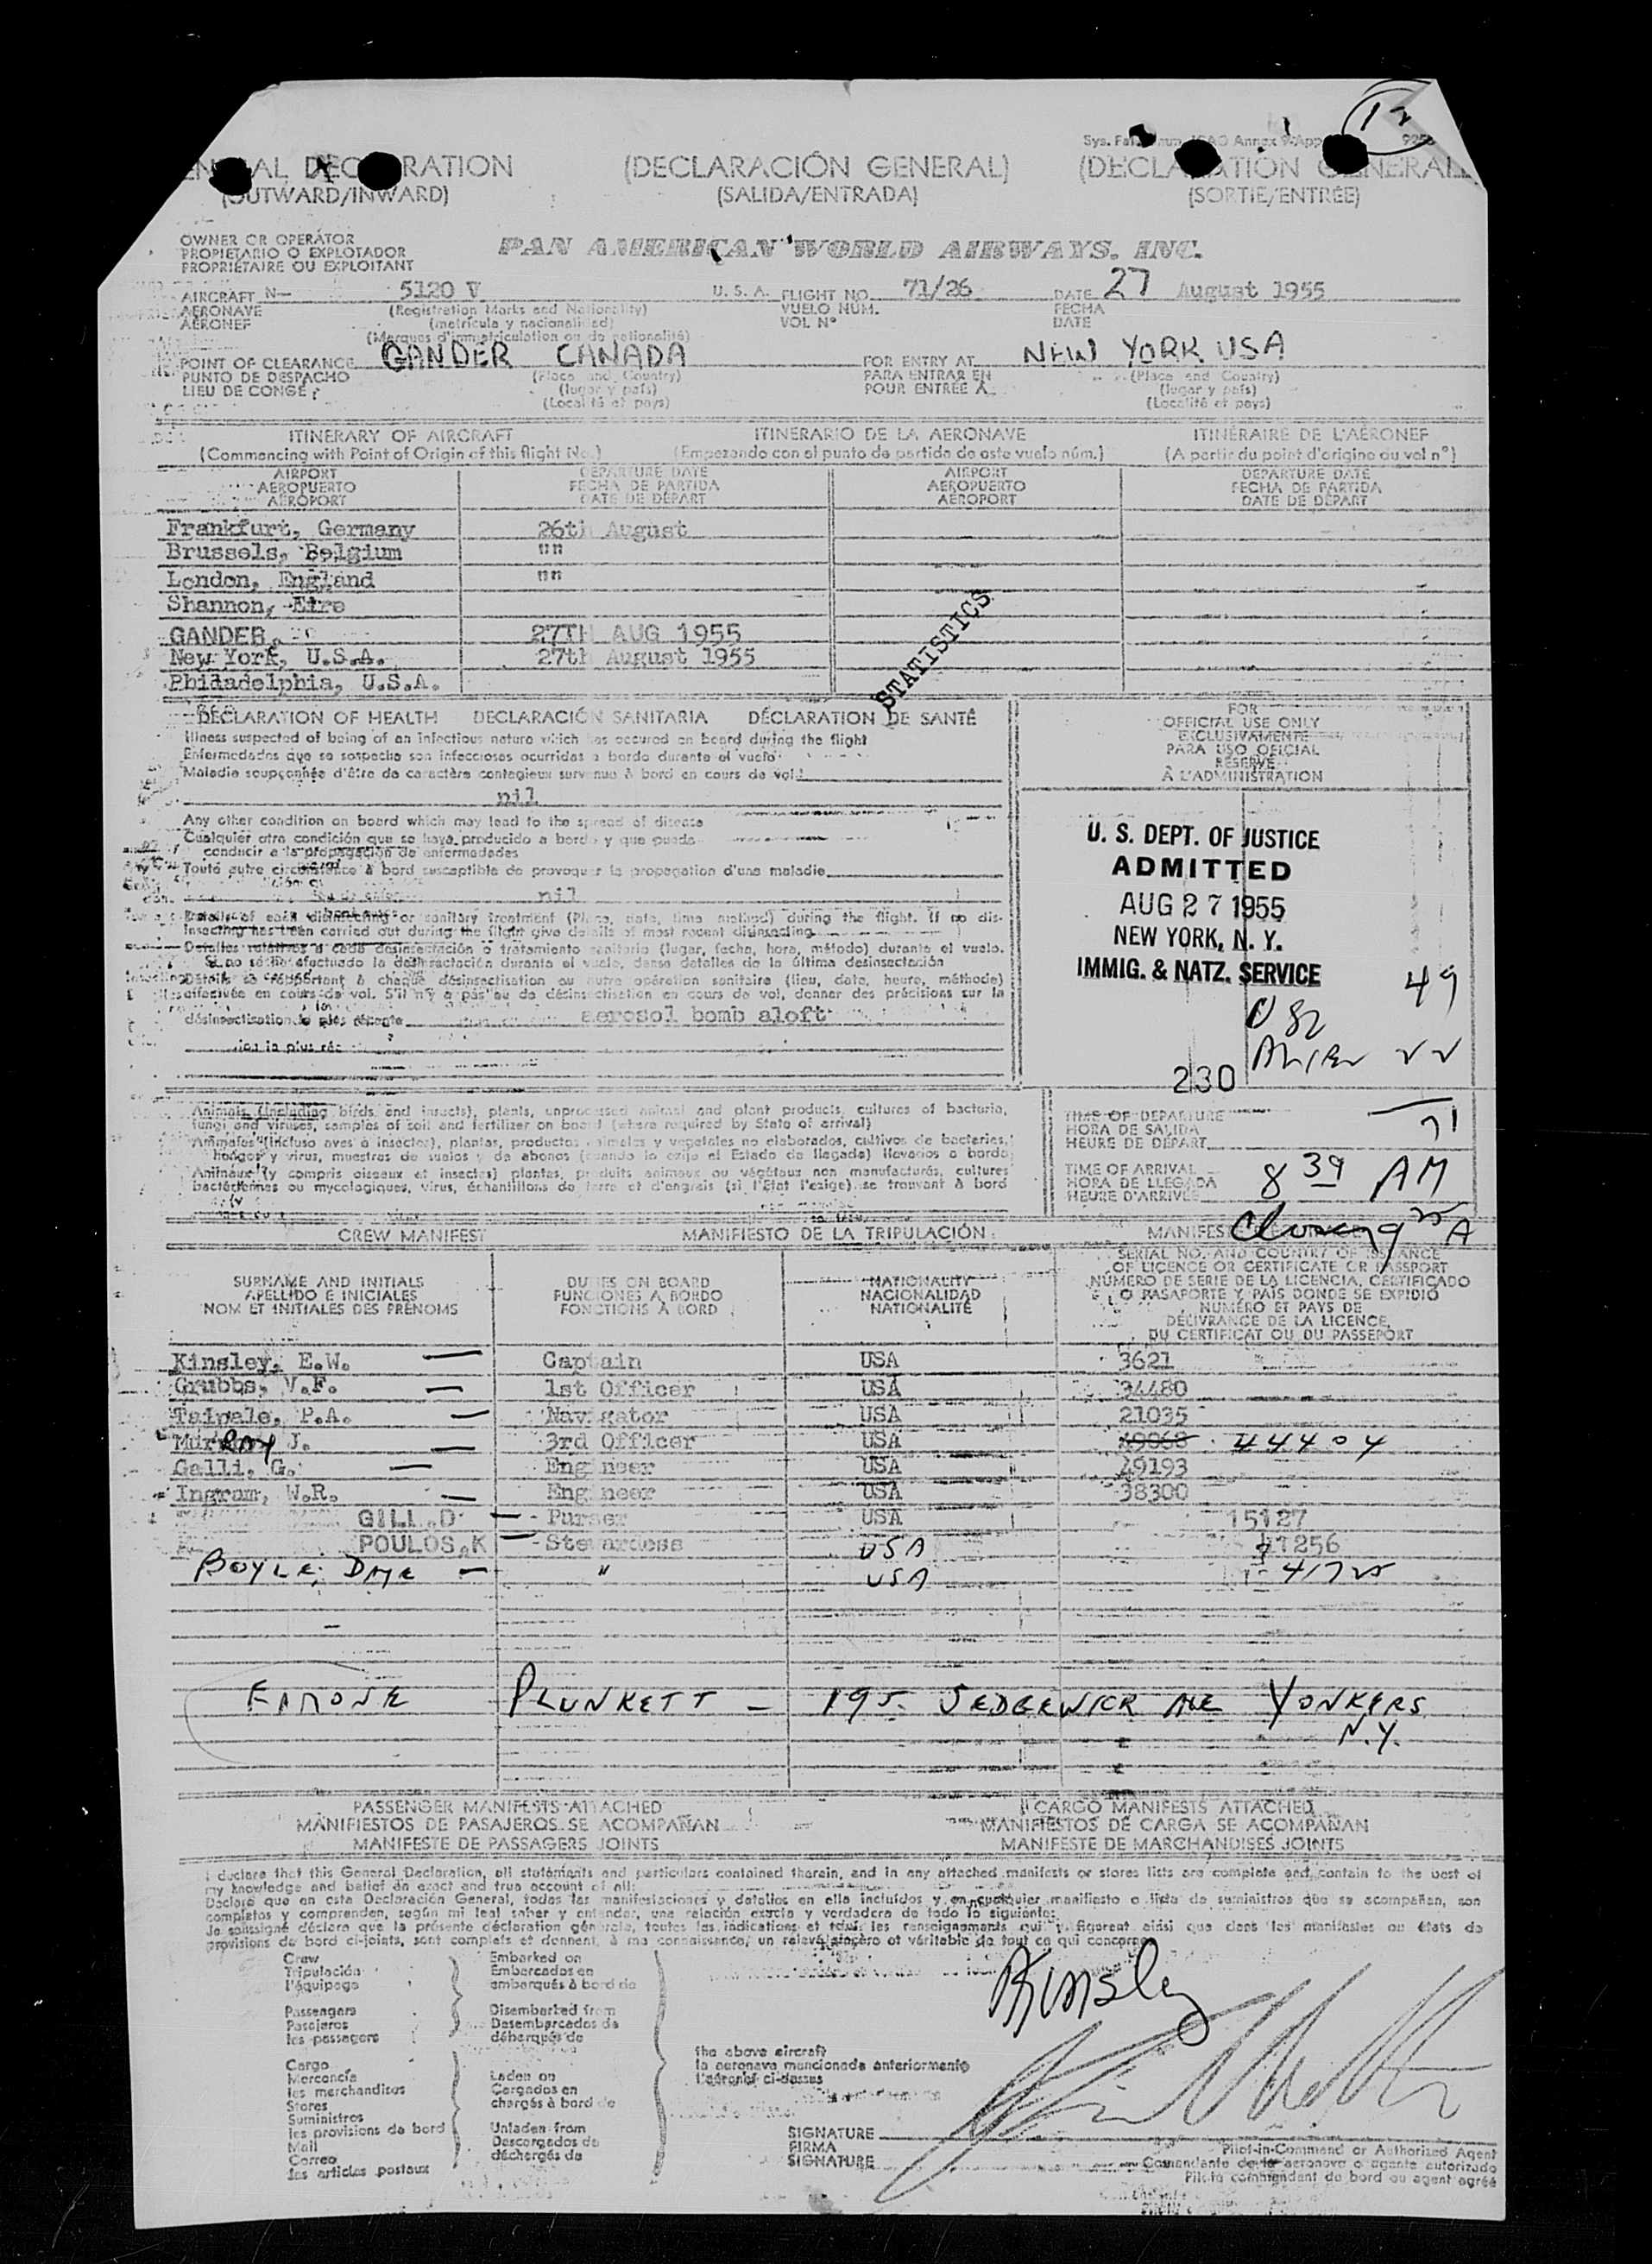 12
(DECLARACIÓN GENERAL)
(OUTWARD/INWARD) (SALIDA/ENTRADA) (SORTIE/ENTRÉE)
OWNER OR OPERATOR
PROPIETARIO O EXPLOTADOR
PROPRIÉTAIRE OU EXPLOITANT
PAN AMERICAN WORLD AIRWAYS, INC.
AIRCRAFT N— 5120 V U. S. A. FLIGHT NO. 71/26 DATE 27 August 1955
AERONAVE (Registration Marks and Nationality) VUELO NÚM. FECHA
AÉRONEF (matrícula y nacionalidad) VOL N° DATE
(Marques d'immatriculation ou de nationalité)
POINT OF CLEARANCE GANDER CANADA FOR ENTRY AT NEW YORK USA
PUNTO DE DESPACHO (Place and Country) PARA ENTRAR EN (Place and Country)
LIEU DE CONGÉ (lugar y país) POUR ENTRÉE À (lugar y país)
(Localité et pays) (Localité et pays)
ITINERARY OF AIRCRAFT ITINERARIO DE LA AERONAVE ITINÉRAIRE DE L'AÉRONEF
(Commencing with Point of Origin of this flight No.) (Empezando con el punto de partida de este vuelo núm.) (A partir du point d'origine du vol n°)
AIRPORT DEPARTURE DATE AIRPORT DEPARTURE DATE
AEROPUERTO FECHA DE PARTIDA AEROPUERTO FECHA DE PARTIDA
AÉROPORT DATE DE DÉPART AÉROPORT DATE DE DÉPART
Frankfurt, Germany 26th August
Brussels, Belgium ""
London, England ""
Shannon, Eire
GANDER 27TH AUG 1955
New York, U.S.A. 27th August 1955
Philadelphia, U.S.A.
STATISTICS
DECLARATION OF HEALTH DECLARACIÓN SANITARIA DÉCLARATION DE SANTÉ
Illness suspected of being of an infectious nature which has occured on board during the flight
Enfermedades que se sospecha son infecciosas ocurridas a bordo durante el vuelo
Maladie soupçonnée d'être de caractère contagieux survenue à bord en cours de vol
nil
Any other condition on board which may lead to the spread of disease
Cualquier otra condición que se haya producido a bordo y que pueda
conducir a la propagación de enfermedades
Toute autre circonstance à bord susceptible de provoquer la propagation d'une maladie
nil
Details of each disinsecting or sanitary treatment (Place, date, time method) during the flight. If no dis-
insecting has been carried out during the flight give details of most recent disinsecting
Detalles relativos a cada desinsectación o tratamiento sanitario (lugar, fecha, hora, método) durante el vuelo.
Si no se ha efectuado la desinsectación durante el vuelo, dense detalles de la última desinsectación
Détails se rapportant à chaque désinsectisation ou autre opération sanitaire (lieu, date, heure, méthode)
effectuée en cours de vol. S'il n'y a pas eu de désinsectisation en cours de vol, donner des précisions sur la
désinsectisation la plus récente aerosol bomb aloft
FOR
OFFICIAL USE ONLY
EXCLUSIVAMENTE
PARA USO OFICIAL
RÉSERVÉ
À L'ADMINISTRATION
U. S. DEPT. OF JUSTICE
ADMITTED
AUG 27 1955
NEW YORK, N. Y.
IMMIG. & NATZ. SERVICE
49
230
Animals (including birds and insects), plants, unprocessed animal and plant products, cultures of bacteria,
fungi and viruses, samples of soil and fertilizer on board (where required by State of arrival)
Animales (incluso aves e insectos), plantas, productos animales y vegetales no elaborados, cultivos de bacterias,
hongos y virus, muestras de suelos y de abonos (cuando lo exija el Estado de llegada) llevados a bordo
Animaux (y compris oiseaux et insectes) plantes, produits animaux ou végétaux non manufacturés, cultures
bactériennes ou mycologiques, virus, échantillons de terre et d'engrais (si l'État l'exige) se trouvant à bord
TIME OF DEPARTURE
HORA DE SALIDA
HEURE DE DÉPART
71
TIME OF ARRIVAL
HORA DE LLEGADA
HEURE D'ARRIVÉE
8 39 AM
CREW MANIFEST MANIFIESTO DE LA TRIPULACIÓN
SURNAME AND INITIALS
APELLIDO E INICIALES
NOM ET INITIALES DES PRÉNOMS
DUTIES ON BOARD
FUNCIONES A BORDO
FONCTIONS À BORD
NATIONALITY
NACIONALIDAD
NATIONALITÉ
SERIAL NO. AND COUNTRY OF ISSUANCE
OF LICENCE OR CERTIFICATE OR PASSPORT
NÚMERO DE SERIE DE LA LICENCIA, CERTIFICADO
O PASAPORTE Y PAÍS DONDE SE EXPIDIÓ
NUMÉRO ET PAYS DE
DÉLIVRANCE DE LA LICENCE,
DU CERTIFICAT OU DU PASSEPORT
Kinsley, E.W. — Captain USA 3621
Grubbs, V.F. — 1st Officer USA 34480
Taipale, P.A. — Navigator USA 21035
Murray J. — 3rd Officer USA 49068 44404
Galli, G. — Engineer USA 49193
Ingram, W.R. — Engineer USA 38300
GILL.D — Purser USA 15127
POULOS,K — Stewardess USA 41256
BOYLE, — " USA 41725
PLUNKETT — 195 SEDGEWICK AVE YONKERS
N.Y.
PASSENGER MANIFESTS ATTACHED CARGO MANIFESTS ATTACHED
MANIFIESTOS DE PASAJEROS SE ACOMPAÑAN MANIFIESTOS DE CARGA SE ACOMPAÑAN
MANIFESTE DE PASSAGERS JOINTS MANIFESTE DE MARCHANDISES JOINTS
I declare that this General Declaration, all statements and particulars contained therein, and in any attached manifests or stores lists are complete and contain to the best of
my knowledge and belief an exact and true account of all:
Declaro que en esta Declaración General, todas las manifestaciones y detalles en ella incluidos y en cualquier manifiesto o lista de suministros que se acompañan, son
completos y comprenden, según mi leal saber y entender, una relación exacta y verdadera de todo lo siguiente:
Je soussigné déclare que la présente déclaration générale, toutes les indications et tous les renseignements qui y figurent ainsi que dans les manifestes ou états de
provisions de bord ci-joints, sont complets et donnent, à ma connaissance, un relevé sincère et véritable de tout ce qui concerne
Crew
Tripulación
l'équipage
Passengers
Pasajeros
les passagers
Cargo
Mercancía
les marchandises
Stores
Suministros
les provisions de bord
Mail
Correo
les articles postaux
Embarked on
Embarcados en
embarqués à bord de
Disembarked from
Desembarcados de
débarqués de
Laden on
Cargados en
chargés à bord de
Unladen from
Descargados de
déchargés de
the above aircraft
la aeronave mencionada anteriormente
l'aéronef ci-dessus
Kinsley
SIGNATURE
FIRMA
SIGNATURE
Pilot-in-Command or Authorized Agent
Comandante de la aeronave o agente autorizado
Pilote commandant de bord ou agent agréé